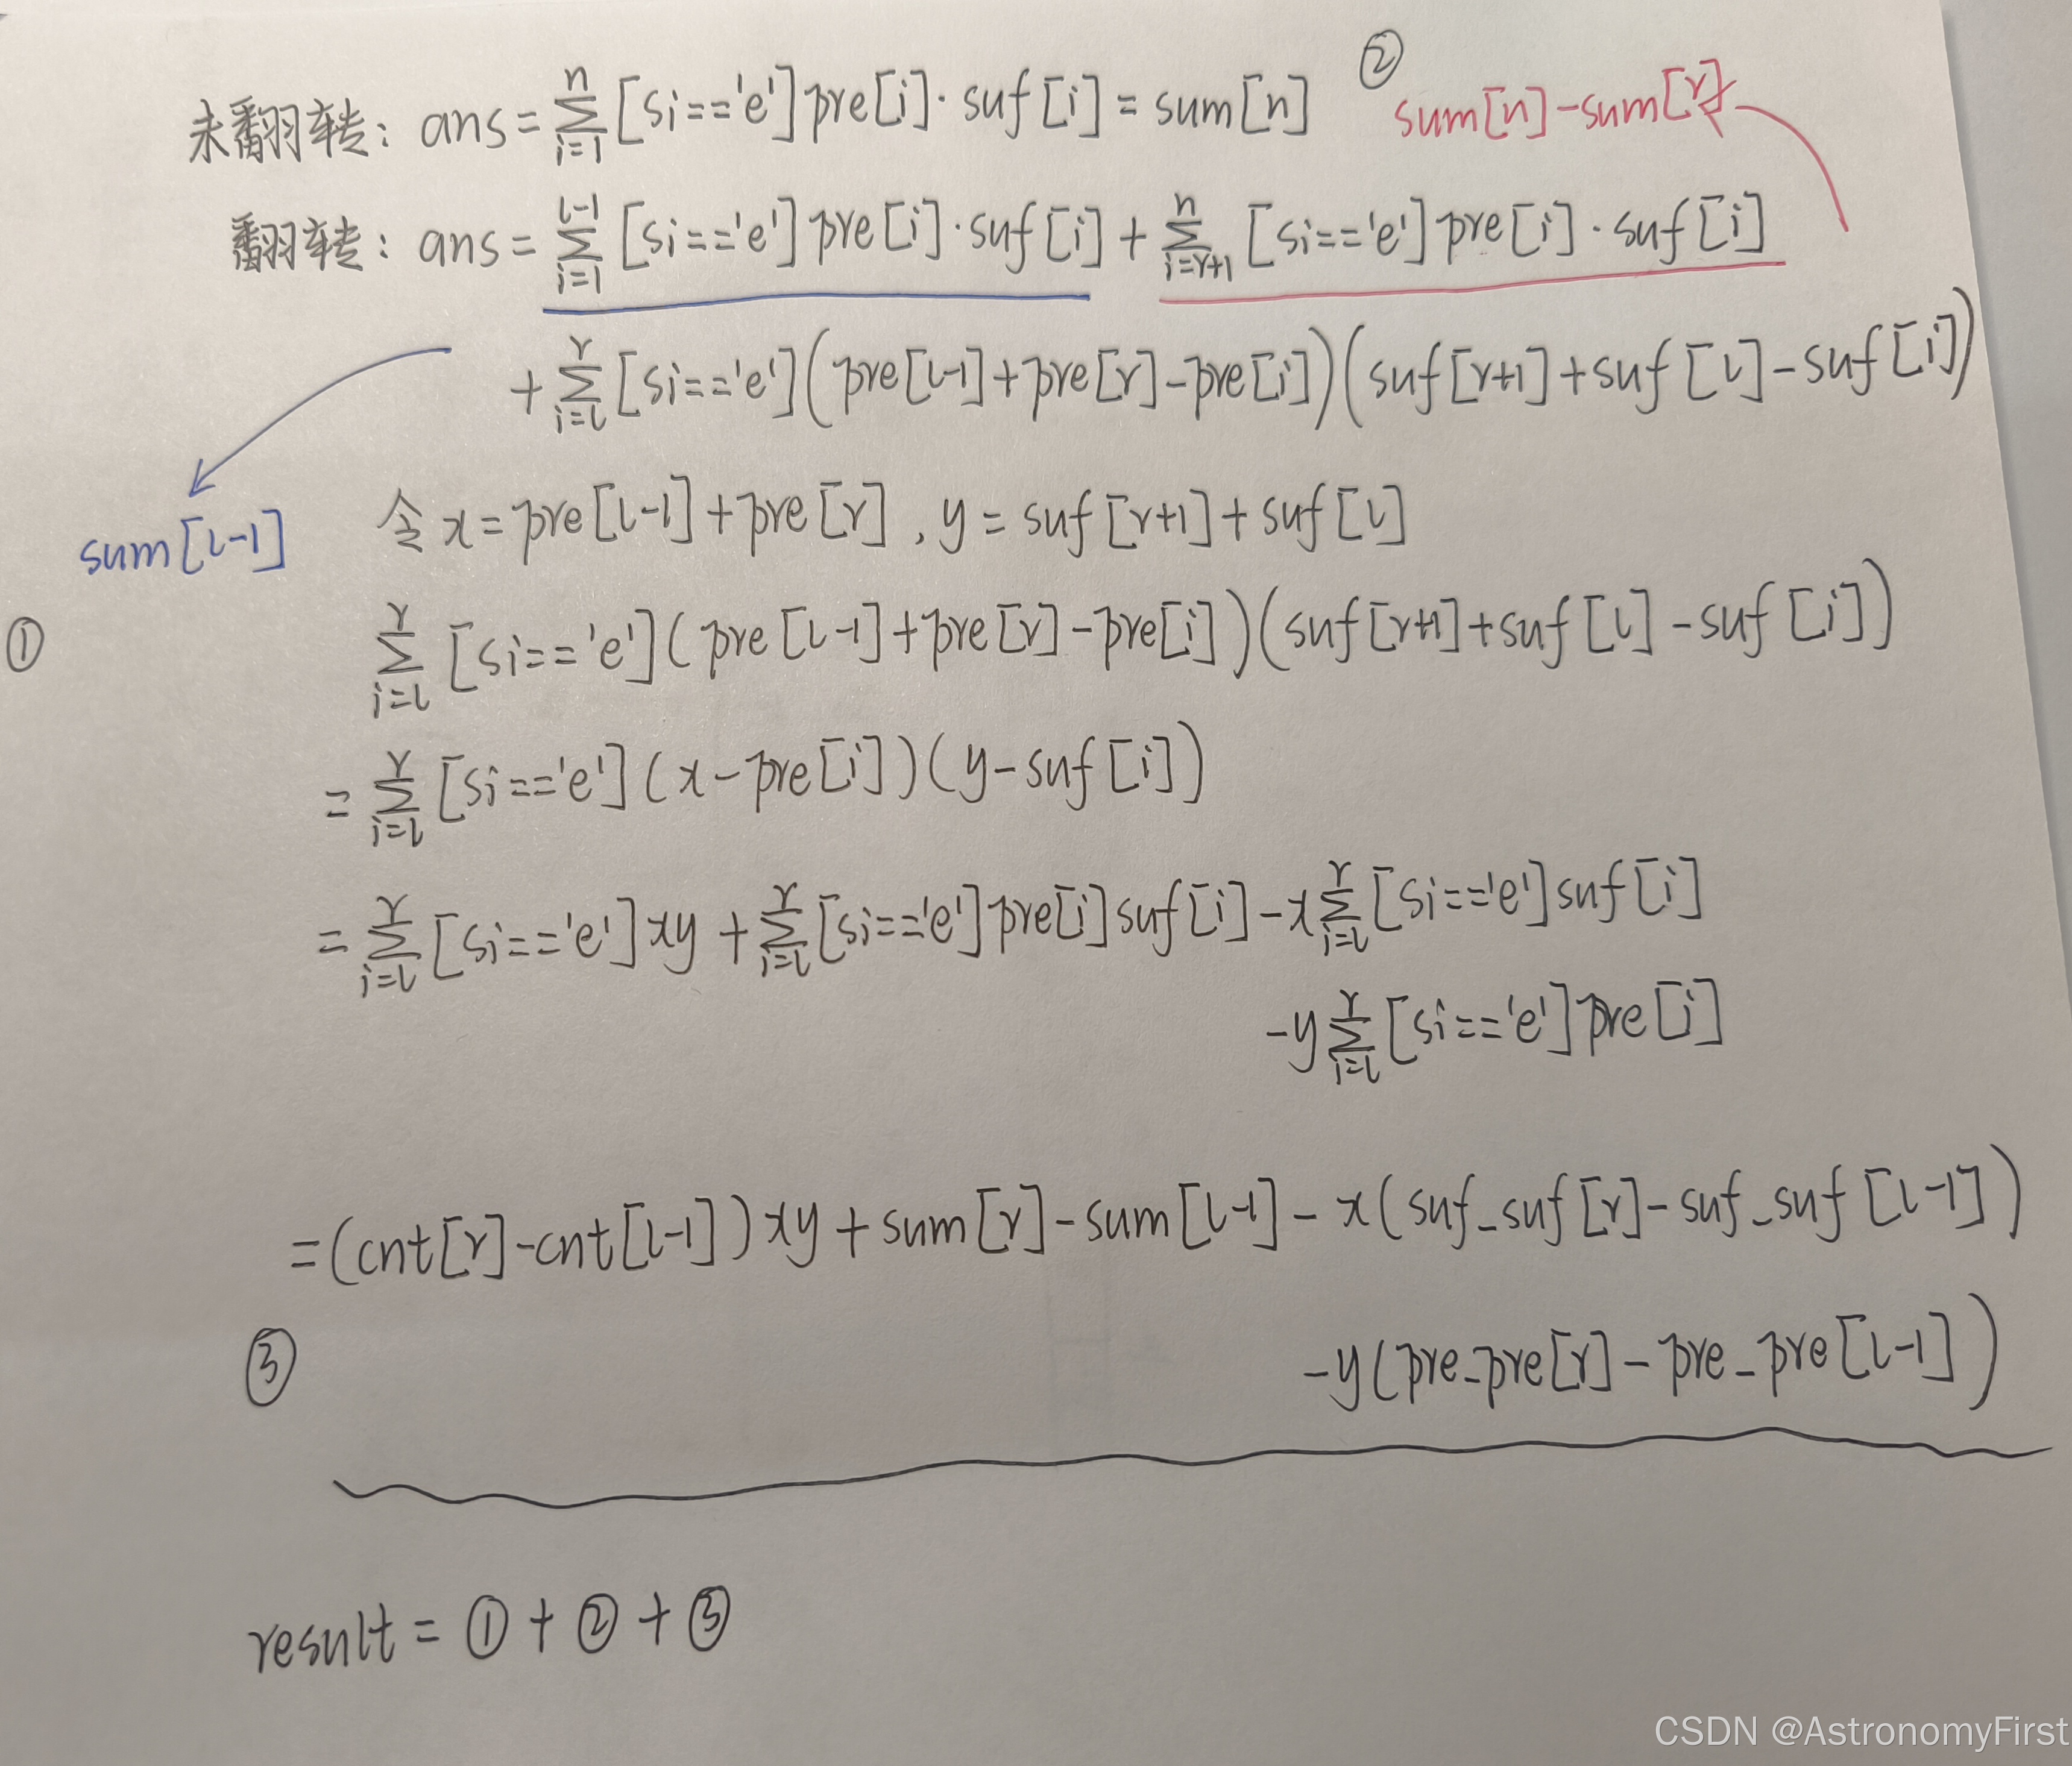 ②
未翻转: ans = ∑_{i=1}^{n} [si=='e'] pre[i]·suf[i] = sum[n]
sum[n]-sum[r]
翻转: ans = ∑_{i=1}^{l-1} [si=='e'] pre[i]·suf[i] + ∑_{i=r+1}^{n} [si=='e'] pre[i]·suf[i]
+ ∑_{i=l}^{r} [si=='e'](pre[l-1]+pre[r]-pre[i])(suf[r+1]+suf[l]-suf[i])
sum[l-1]
令 x = pre[l-1]+pre[r], y = suf[r+1]+suf[l]
①
∑_{i=l}^{r} [si=='e'](pre[l-1]+pre[r]-pre[i])(suf[r+1]+suf[l]-suf[i])
= ∑_{i=l}^{r} [si=='e'](x-pre[i])(y-suf[i])
= ∑_{i=l}^{r} [si=='e']xy + ∑_{i=l}^{r} [si=='e']pre[i]suf[i] - x∑_{i=l}^{r} [si=='e']suf[i]
-y∑_{i=l}^{r} [si=='e']pre[i]
=(cnt[r]-cnt[l-1])xy+sum[r]-sum[l-1]-x(suf_suf[r]-suf_suf[l-1])
③
-y(pre_pre[r]-pre_pre[l-1])
result = ① + ② + ③
CSDN @AstronomyFirst